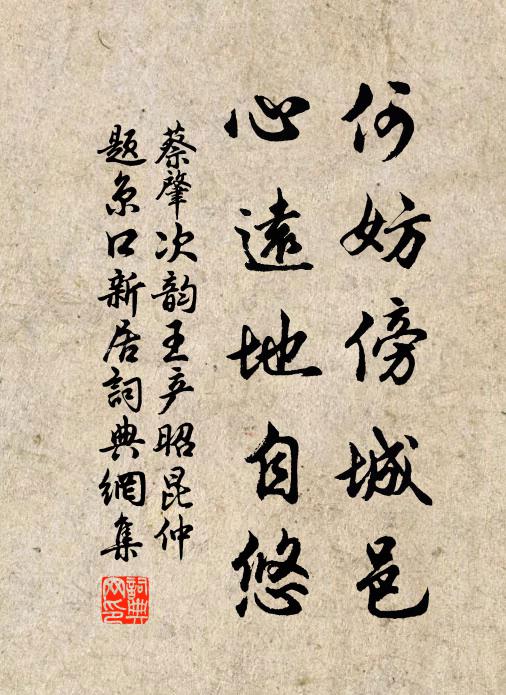 何妨傍城邑
心遠地自悠
蔡肇次韵王彦昭昆仲
题京口新居詞典網集
詞典网印